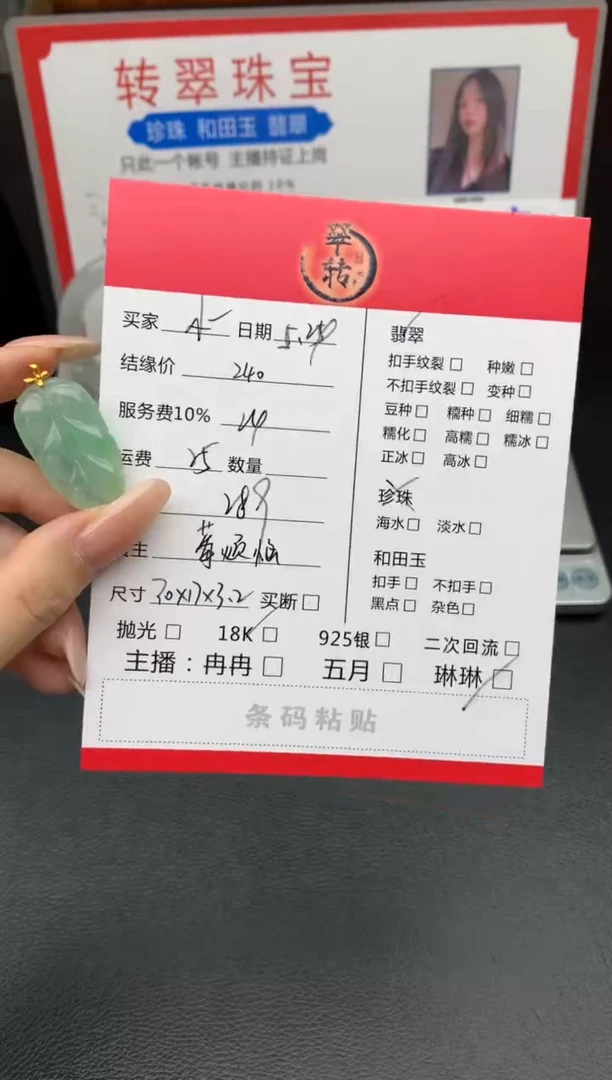 转翠珠宝
珍珠 和田玉 翡翠
只此一个帐号 主播持证上岗
翠
转
买家 日期 5.24
结缘价 240
服务费10% 24
运费 25 数量
289
主
尺寸 30x17x3.2 买断□
抛光□ 18K□ 925银□ 二次回流□
主播：冉冉□ 五月□ 琳琳□
条码粘贴
翡翠
扣手纹裂□ 种嫩□
不扣手纹裂□ 变种□
豆种□ 糯种□ 细糯□
糯化□ 高糯□ 糯冰□
正冰□ 高冰□
珍珠
海水□ 淡水□
和田玉
扣手□ 不扣手□
黑点□ 杂色□